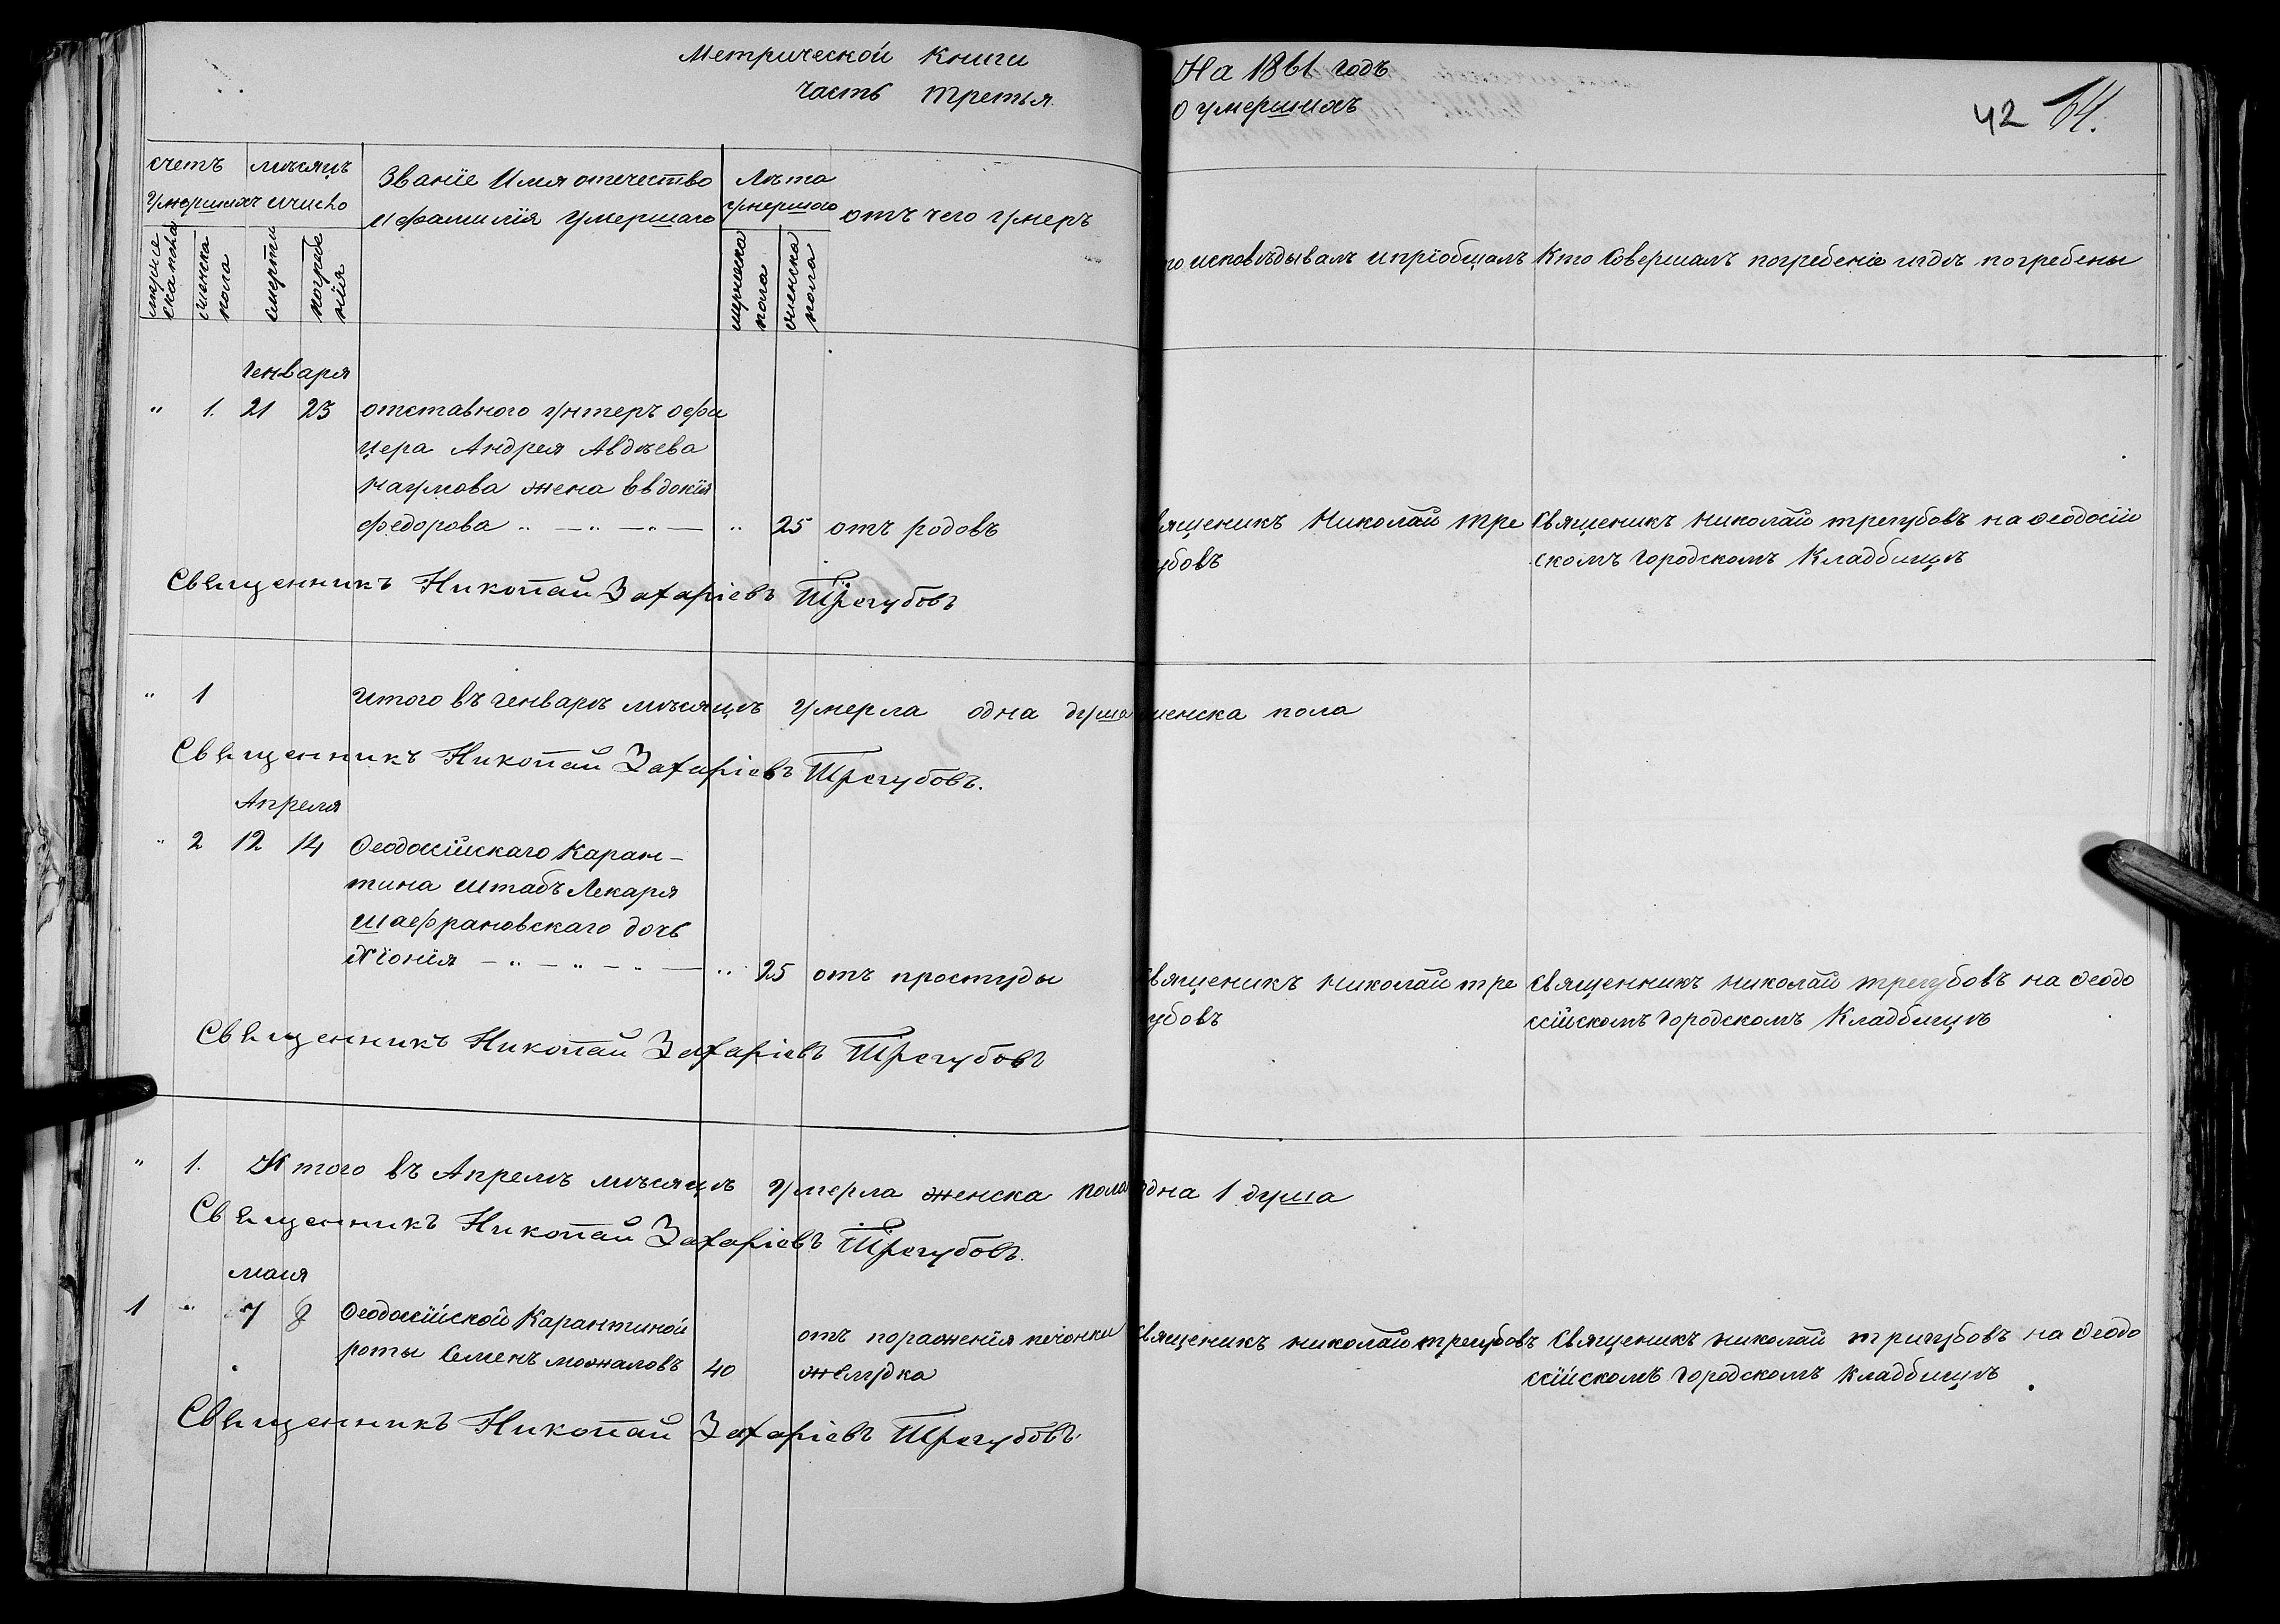 Метрической Книги
часть третья
На 1861 годъ
о умершихъ
42 64.
счетъ умершихъ
мужеска пола
женска пола
мѣсяцъ и число
смерти
погребенія
Званіе Имя отечество
и фамилія умершаго
Лѣта
умершаго
мужеска пола
женска пола
отъ чего умеръ
исповѣдывалъ и пріобщалъ
Кто Совершалъ погребеніе и гдѣ погребены
Генваря
" 1. 21 23 отставного унтеръ офи
цера Андрея Авдѣева
наумова жена Евдокія
федорова " — " — " — " 25 отъ родовъ
вященикъ Николай тре
убовъ
Священикъ николай трегубовъ на Ѳеодосій
скомъ городскомъ Кладбищѣ
Священникъ Николай Захаріевъ Трегубовъ
" 1 Итого въ Генварѣ мѣсяцѣ умерла одна душа женска пола
Священникъ Николай Захаріевъ Трегубовъ.
Апреля
" 2 12 14 Ѳеодосійскаго Каран-
тина штабъ Лекаря
шафрановскаго дочь
— " — " — " — " 25 отъ простуды
Священикъ николай тре
убовъ
Священникъ николай трегубовъ на Ѳеодо
сійскомъ городскомъ Кладбищѣ
Священникъ Николай Захаріевъ Трегубовъ
" 1. Итого въ Апрелѣ мѣсяцѣ умерла женска пола одна 1 душа
Священникъ Николай Захаріевъ Трегубовъ.
маия
1 " 7 8 Ѳеодосійской Карантиной
роты Семенъ можаловъ 40
отъ пораженія печонки
желудка
Священикъ николай трегубовъ
Священикъ николай тригубовъ на Ѳеодо
сійскомъ городскомъ кладбищѣ
Священникъ Николай Захаріевъ Трегубовъ